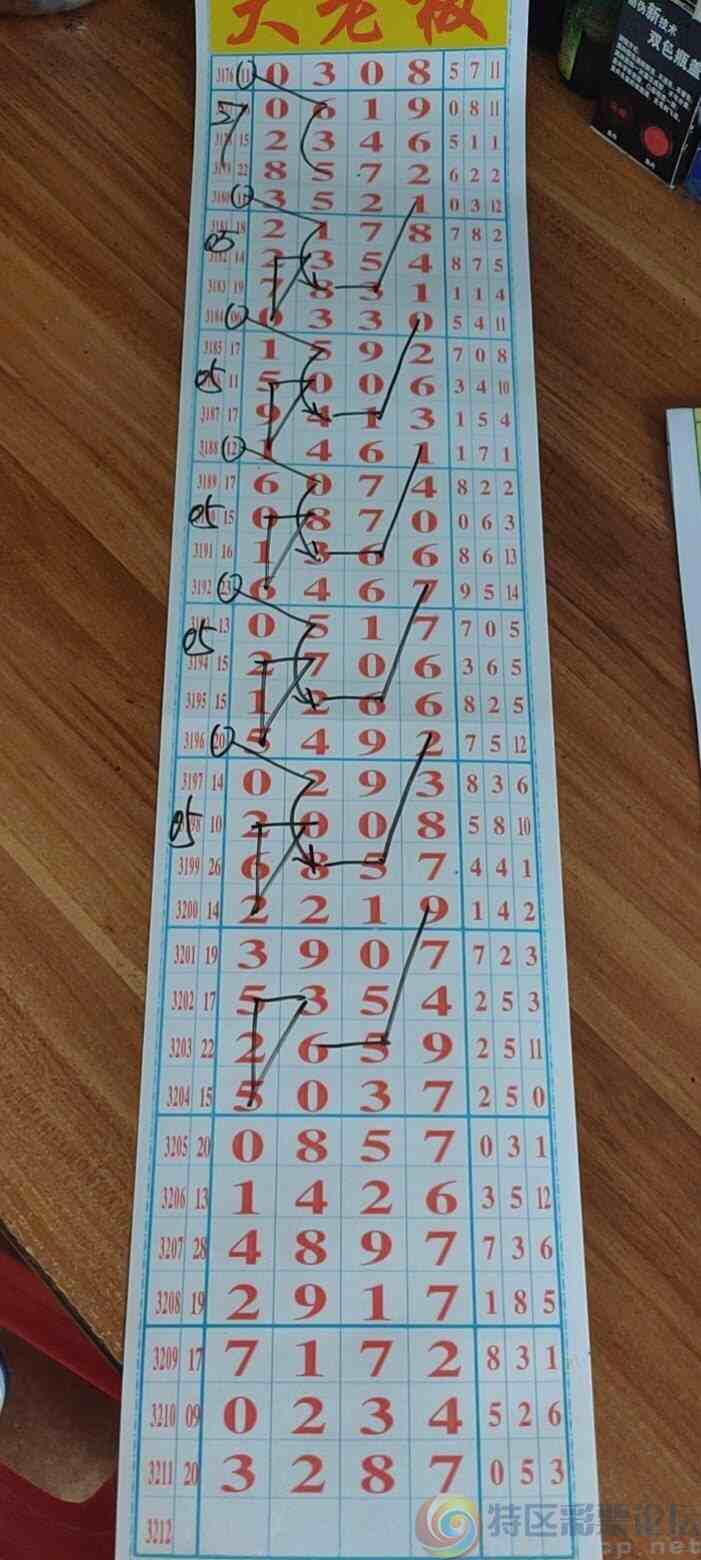 大老板
3176 11 0 3 0 8 5 7 11
0 6 1 9 0 8 11
15 2 3 4 6 5 1 1
22 8 5 7 2 6 2 2
3180 3 5 2 1 0 3 12
18 2 1 7 8 7 8 2
05
3182 14 2 3 5 4 8 7 5
3183 19 7 8 3 1 1 1 4
3184 06 0 3 3 0 5 4 11
3185 17 1 5 9 2 7 0 8
05 11 5 0 0 6 3 4 10
3187 17 9 4 1 3 1 5 4
3188 12 1 4 6 1 1 7 1
3189 17 6 0 7 4 8 2 2
05 15 0 8 7 0 0 6 3
3191 16 1 3 6 6 8 6 13
3192 23 6 4 6 7 9 5 14
13 0 5 1 7 7 0 5
05
3194 15 2 7 0 6 3 6 5
3195 15 1 2 6 6 8 2 5
3196 20 5 4 9 2 7 5 12
3197 14 0 2 9 3 8 3 6
05 98 10 2 0 0 8 5 8 10
3199 26 6 8 5 7 4 4 1
3200 14 2 2 1 9 1 4 2
3201 19 3 9 0 7 7 2 3
3202 17 5 3 5 4 2 5 3
3203 22 2 6 5 9 2 5 11
3204 15 5 0 3 7 2 5 0
3205 20 0 8 5 7 0 3 1
3206 13 1 4 2 6 3 5 12
3207 28 4 8 9 7 7 3 6
3208 19 2 9 1 7 1 8 5
3209 17 7 1 7 2 8 3 1
3210 09 0 2 3 4 5 2 6
3211 20 3 2 8 7 0 5 3
3212
新技术
双色瓶盖
特区彩票论坛
cp.net